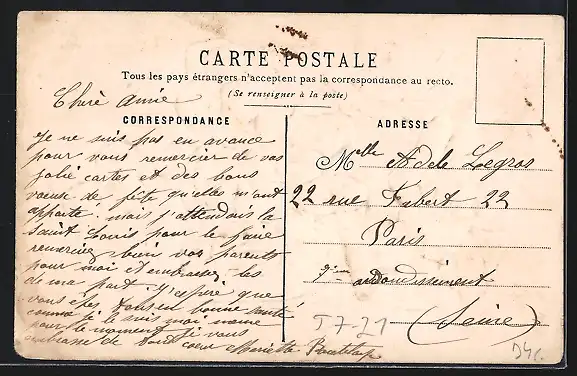 CARTE POSTALE
Tous les pays étrangers n'acceptent pas la correspondance au recto.
(Se renseigner à la poste)
CORRESPONDANCE
ADRESSE
Chère amie
Je ne suis pas en avance
pour vous remercier de vos
jolie cartes et des bons
voeux de fête qu'elles m'ont
apporté. mais j'attendais la
Saint Louis pour le faire
remerciez bien vos parents
pour moi et embrassez les
de ma part. J'espère que
vous êtes tous en bonne santé
comme je le suis moi même
pour le moment je vous
embrasse de tout coeur Mariette
Melle Adele Legros
22 rue Fabert 22
Paris
9ème arrondissement
(Seine)
T7-21
D4c.